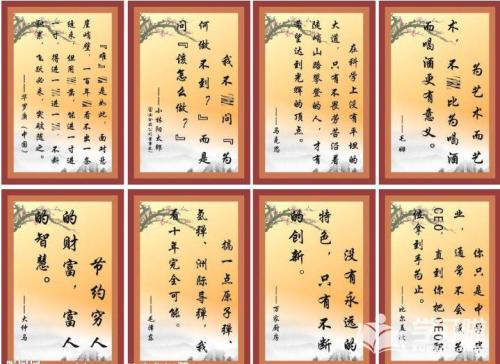 『难』是如此，面对悬
崖峭壁，一百年看不出一条
缝来，但用，能进一寸进
一寸，得进一进一，不断
积累，飞跃必来，突破随之。
——华罗庚（中国）
我不问『为
何做不到？』而是
问『该怎么做？』
——小林阳太郎
在科学上没有平坦的
大道，只有不畏劳苦沿着
陡峭山路攀登的人，才有
希望达到光辉的顶点。
——马克思
为艺术而艺
术，不比为喝酒
而喝酒更有意义。
——毛姆
节约穷人
的财富，富人
的智慧。
——大仲马
搞一点原子弹、
氢弹、洲际导弹，我
看十年完全可能。
——毛泽东
没有永远的
特色，只有不断
的创新。
——万家厨房
你只是中学毕
业，通常不会成为
CEO，直到你把CEO
位拿到手为止。
——比尔盖
学习啦